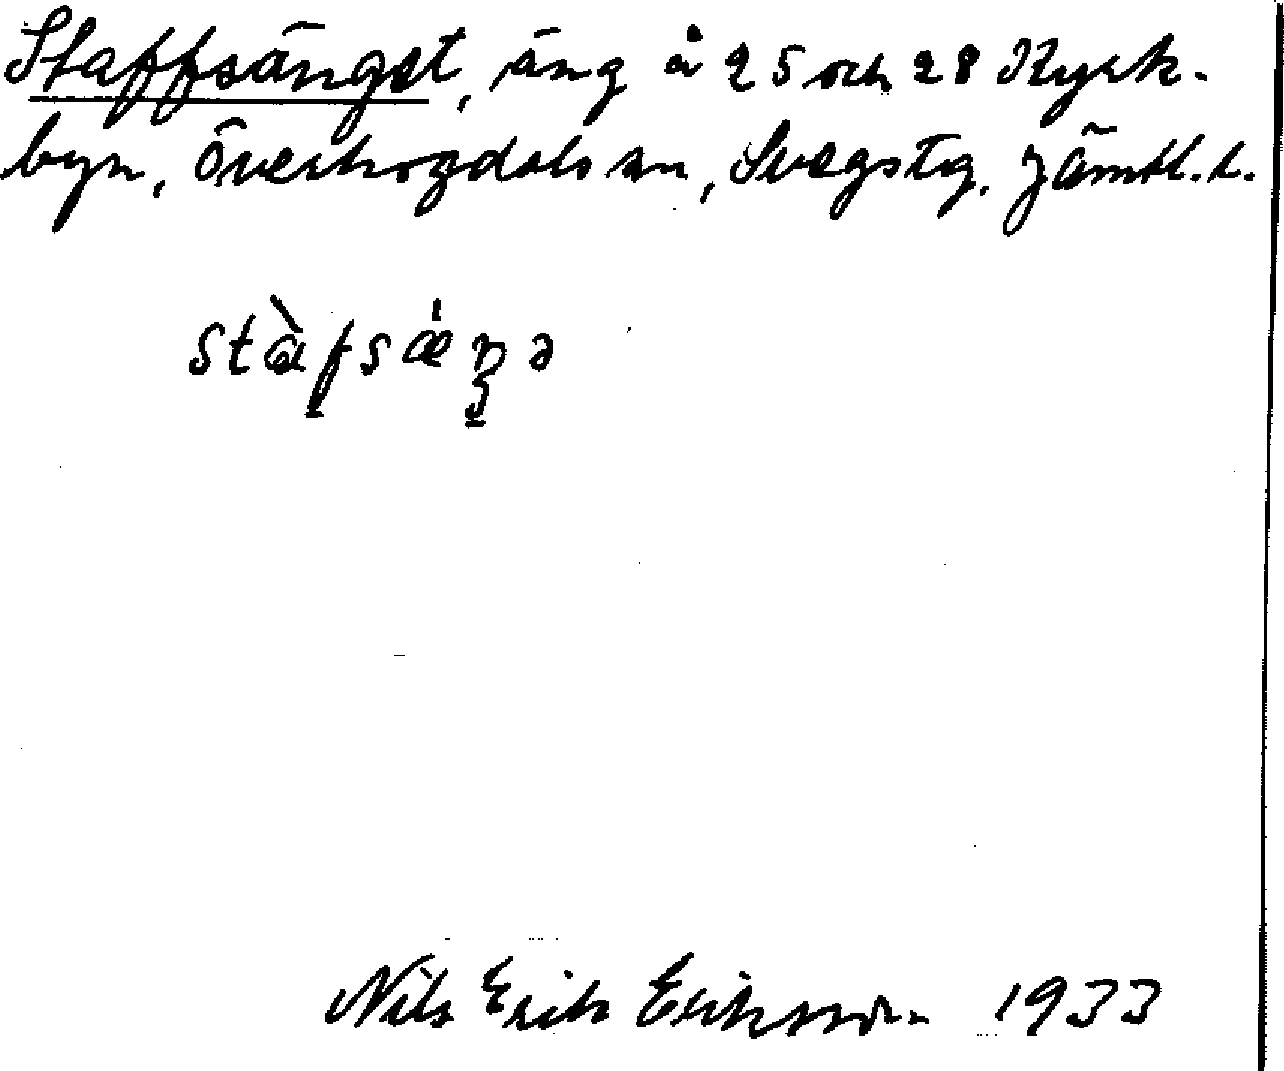 Staffsänget, äng å 25 och 28 Kyrk-
byn, Överhogdals sn, Svegs tg, Jämtl. l.
stàfsæ̍ŋə
Nils Erik Eriksson 1933